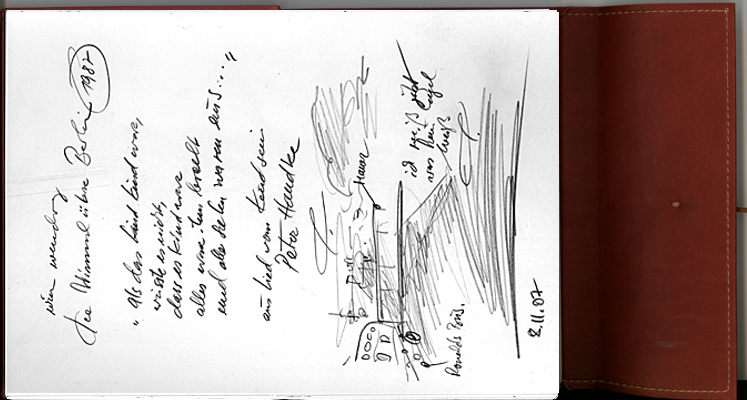 wim wenders
Der Himmel über Berlin 1987
"Als das Kind Kind war,
wusste es nicht,
dass es Kind war
alles war ihm beseelt
und alle Seelen waren eins..."
aus Lied vom Kindsein
Peter Handke
Haus
ich weiß jetzt
was kein Engel
weiß
8.11.07